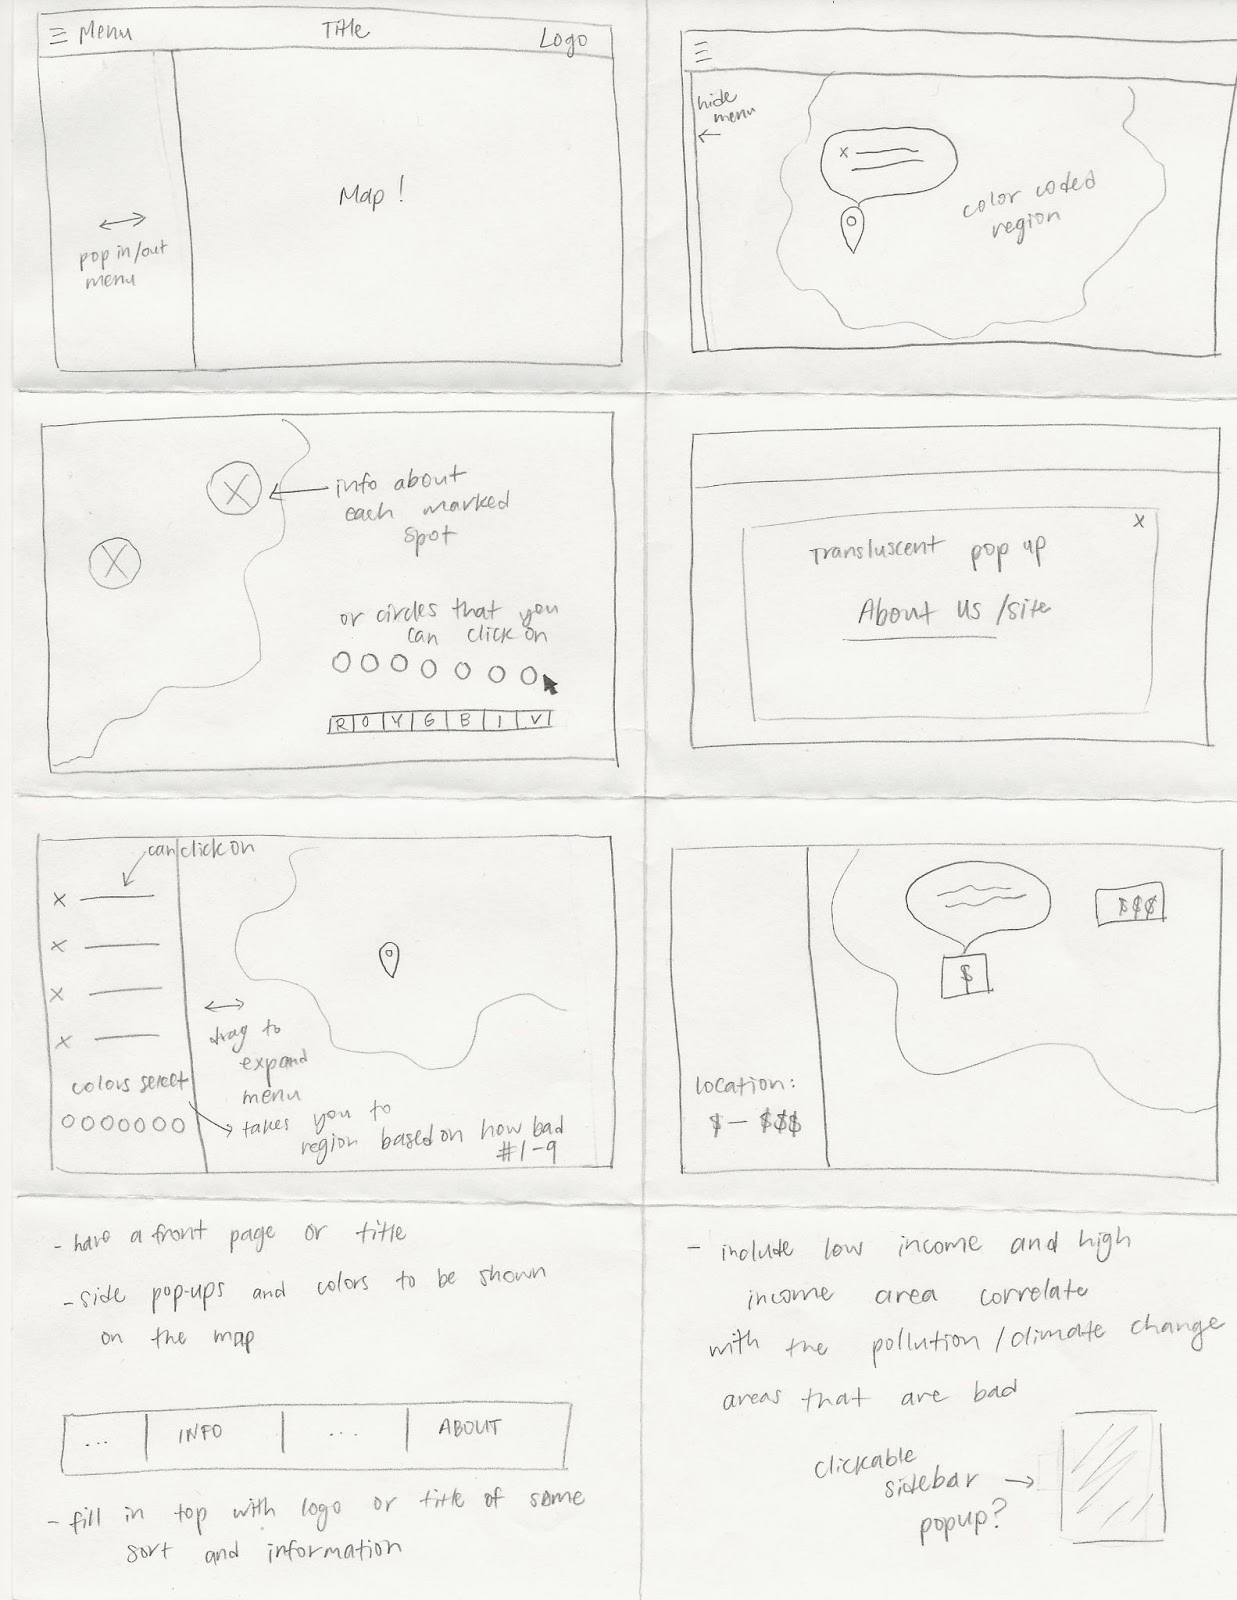 Menu
Title
Logo
Map!
pop in/out
menu
hide
menu
x
color coded
region
X
X
info about
each marked
spot
or circles that you
can click on
R O Y G B I V
x
Transluscent pop up
About Us /site
can click on
x
x
x
x
colors select
drag to
expand
menu
takes you to
region based on how bad
#1-9
$
$$$
location:
$ — $$$
- have a front page or title
- side pop-ups and colors to be shown
on the map
... INFO ... ABOUT
- fill in top with logo or title of some
sort and information
- include low income and high
income area correlate
with the pollution/climate change
areas that are bad
clickable
sidebar
popup?